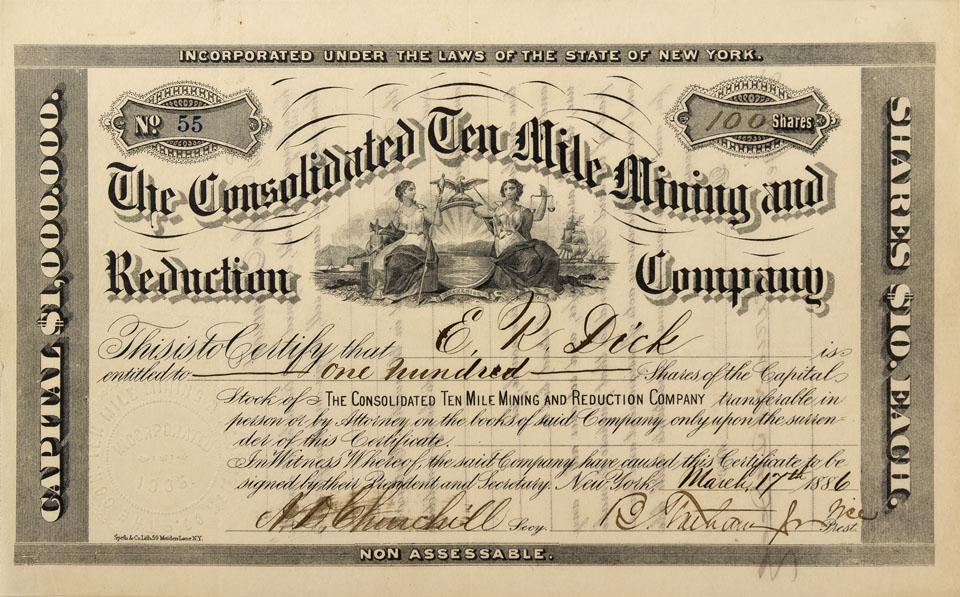 INCORPORATED UNDER THE LAWS OF THE STATE OF NEW YORK.
No 55
100 Shares
CAPITAL $1,000,000.
SHARES $10. EACH.
The Consolidated Ten Mile Mining and
Reduction Company
This is to Certify that E. R. Dick is
entitled to one hundred Shares of the Capital
Stock of The Consolidated Ten Mile Mining and Reduction Company transferable in
person or by Attorney on the books of said Company only upon the surren-
der of this Certificate.
In Witness Whereof, the said Company have caused this Certificate to be
signed by their President and Secretary. New York, March, 17th 1886
Churchill Secy. Jr Vice Prest.
NON ASSESSABLE.